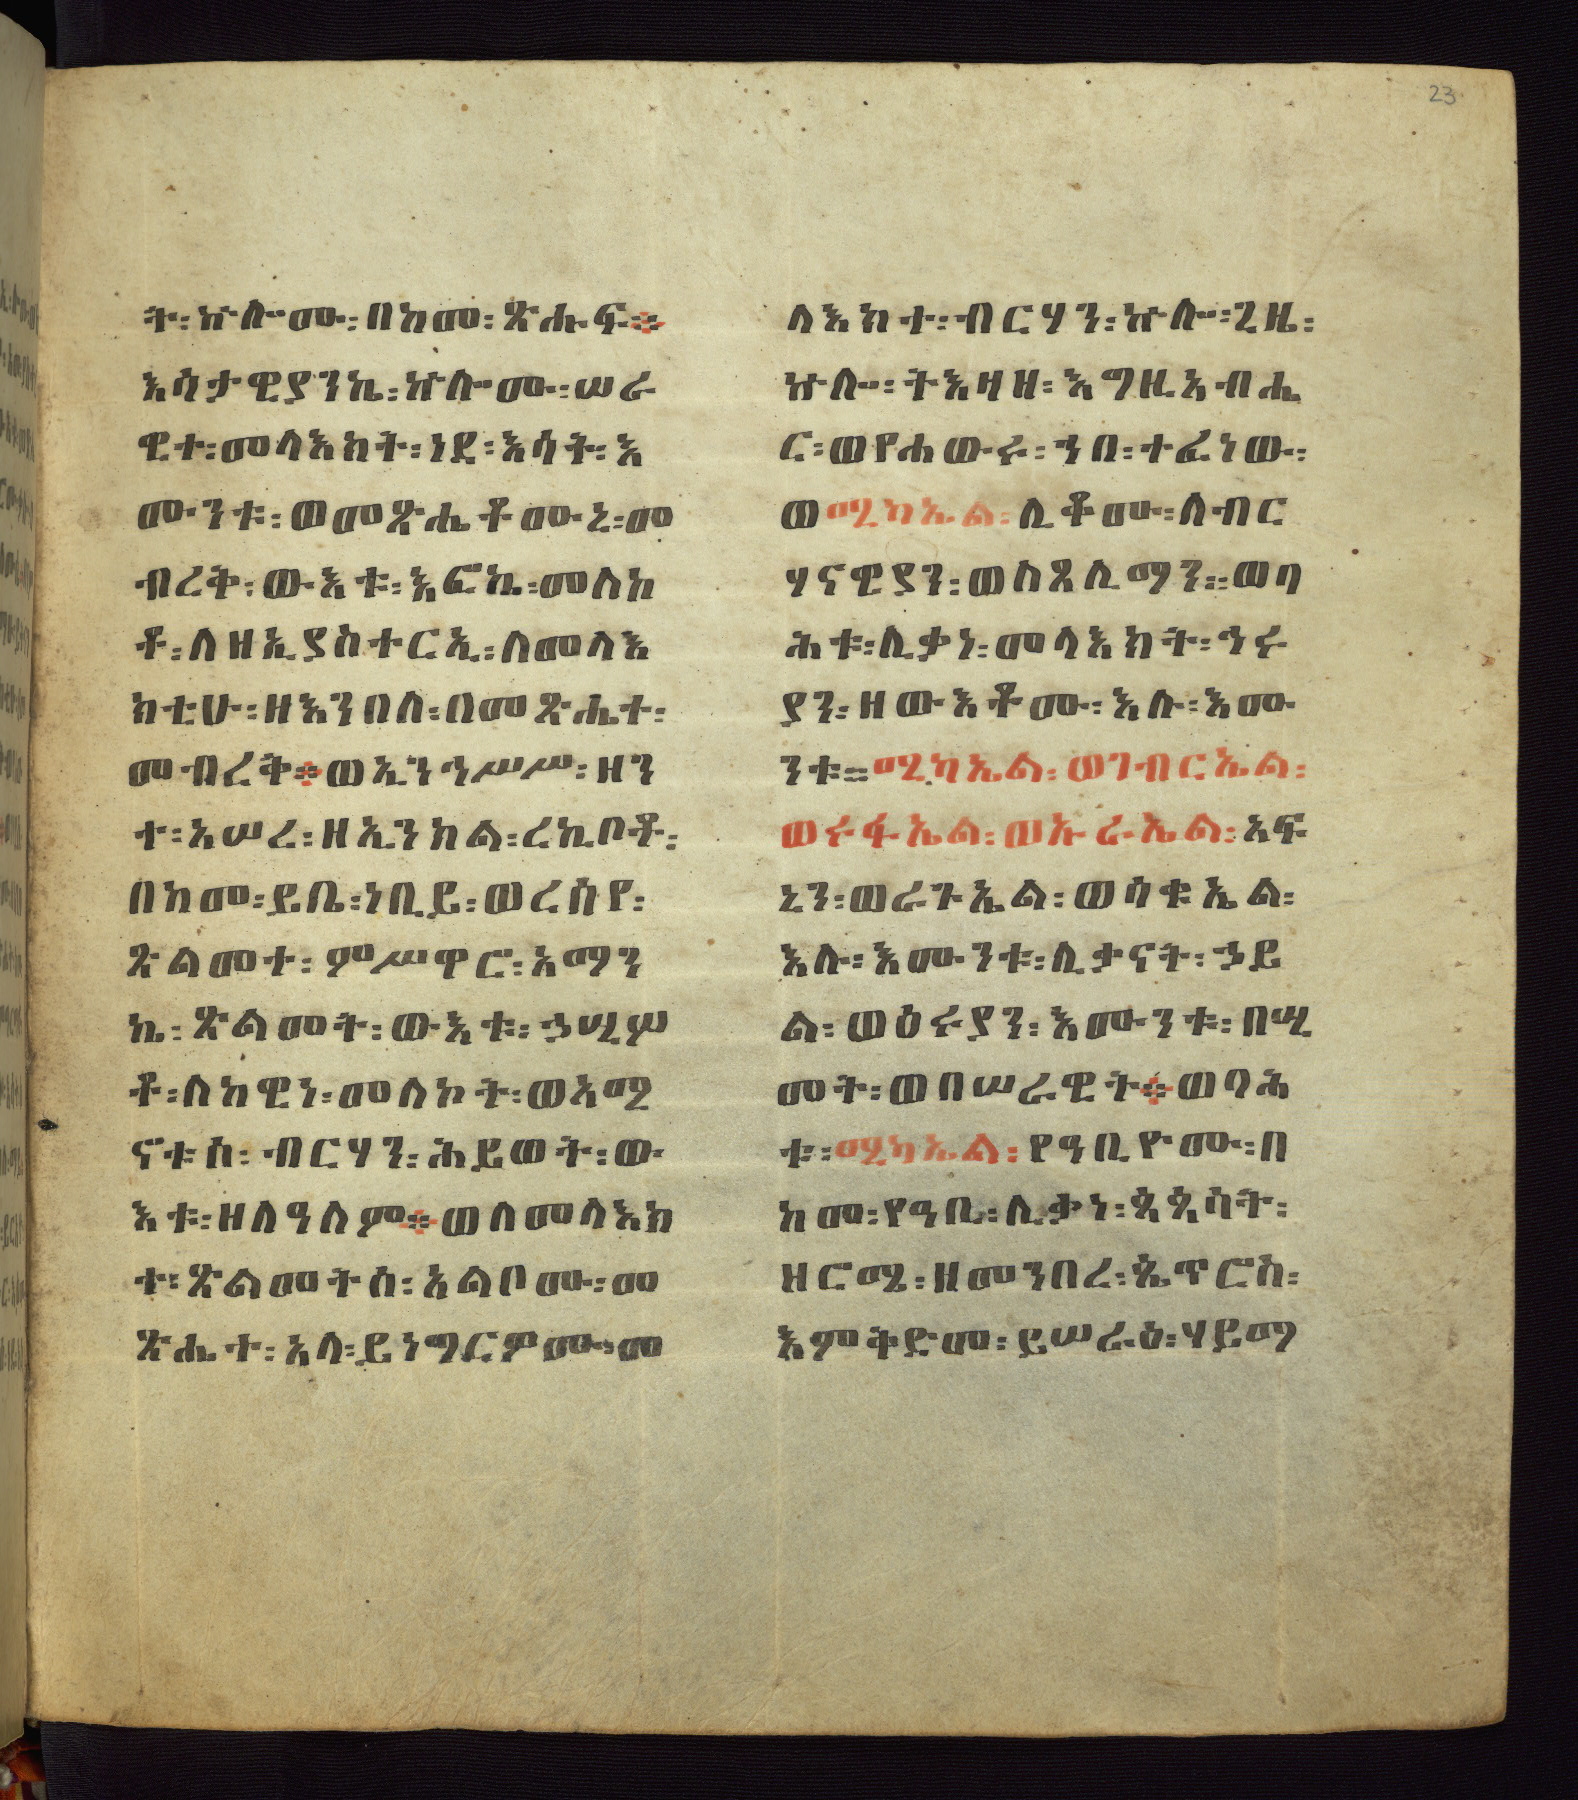 23
ት፡ኵሎሙ፡በከመ፡ጽሑፍ፨
እሳታዊያንኬ፡ኵሎሙ፡ሠራ
ዊተ፡መላእክት፡ነደ፡እሳት፡እ
ሙንቱ፡ወመጽሔቶሙኒ፡መ
ብረቅ፡ውእቱ፡እፎኬ፡መለኮ
ቶ፡ለዘኢያስተርኢ፡ለመላእ
ክቲሁ፡ዘእንበለ፡በመጽሔተ፡
መብረቅ፨ወኢንኅሥሥ፡ዘን
ተ፡አሠረ፡ዘኢንክል፡ረኪቦቶ፡
በከመ፡ይቤ፡ነቢይ፡ወረሰየ፡
ጽልመተ፡ምሥዋሮ፡አማን
ኬ፡ጽልመት፡ውእቱ፡ኃሢሦ
ቶ፡ለከዊነ፡መለኮት፡ወአሚ
ኖቱሰ፡ብርሃን፡ሕይወት፡ው
እቱ፡ዘለዓለም፨ወለመላእክ
ተ፡ጽልመትሰ፡አልቦሙ፡መ
ጽሔተ፡አላ፡ይነግርዎሙ፡መ
ላእክተ፡ብርሃን፡ኵሎ፡ጊዜ፡
ኵሎ፡ትእዛዘ፡እግዚአብሔ
ር፡ወየሐውሩ፡ኀበ፡ተፈነው፡
ወሚካኤል፡ሊቆሙ፡ለብር
ሃናዊያን፡ወለጺሊማን፡፡ወባ
ሕቱ፡ሊቃነ፡መላእክት፡ኅሩ
ያን፡ዘውእቶሙ፡እሉ፡እሙ
ንቱ፡፡ሚካኤል፡ወገብርኤል፡
ወሩፋኤል፡ወኡራኤል፡አፍ
ኒን፡ወራጉኤል፡ወሳቁኤል፡
እሉ፡እሙንቱ፡ሊቃናት፡ኃይ
ል፡ወዕሩያን፡እሙንቱ፡በሢ
መት፡ወበሠራዊት፨ወባሕ
ቱ፡ሚካኤል፡የዓቢዮሙ፡በ
ከመ፡የዓቢ፡ሊቃነ፡ጳጳሳት፡
ዘሮሜ፡ዘመንበረ፡ጴጥሮስ፡
እምቅድመ፡ይሠራዕ፡ሃይማ